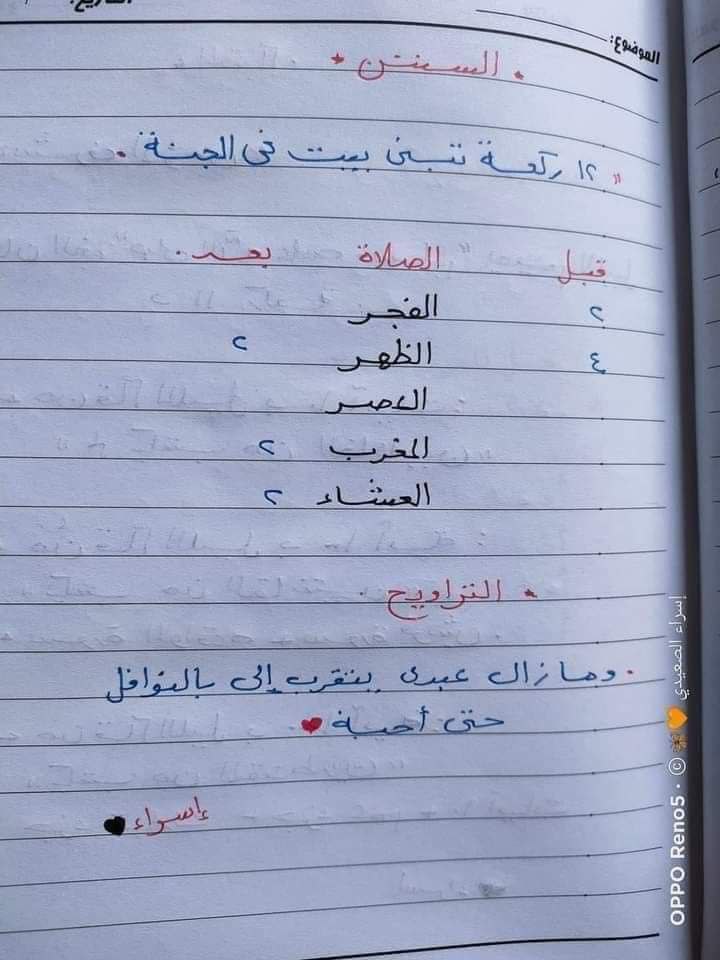 التاريخ:
الموضوع:
* السنن *
" ١٢ ركعة تبنى بيت في الجنة .
قبل الصلاة بعد .
٢ الفجر
٤ الظهر ٢
العصر
المغرب ٢
العشاء ٢
* التراويح .
. وما زال عبدى يتقرب إلى بالنوافل
حتى أحبة ♥
إسراء ♥
OPPO Reno5 · © إسراء الصعيدي